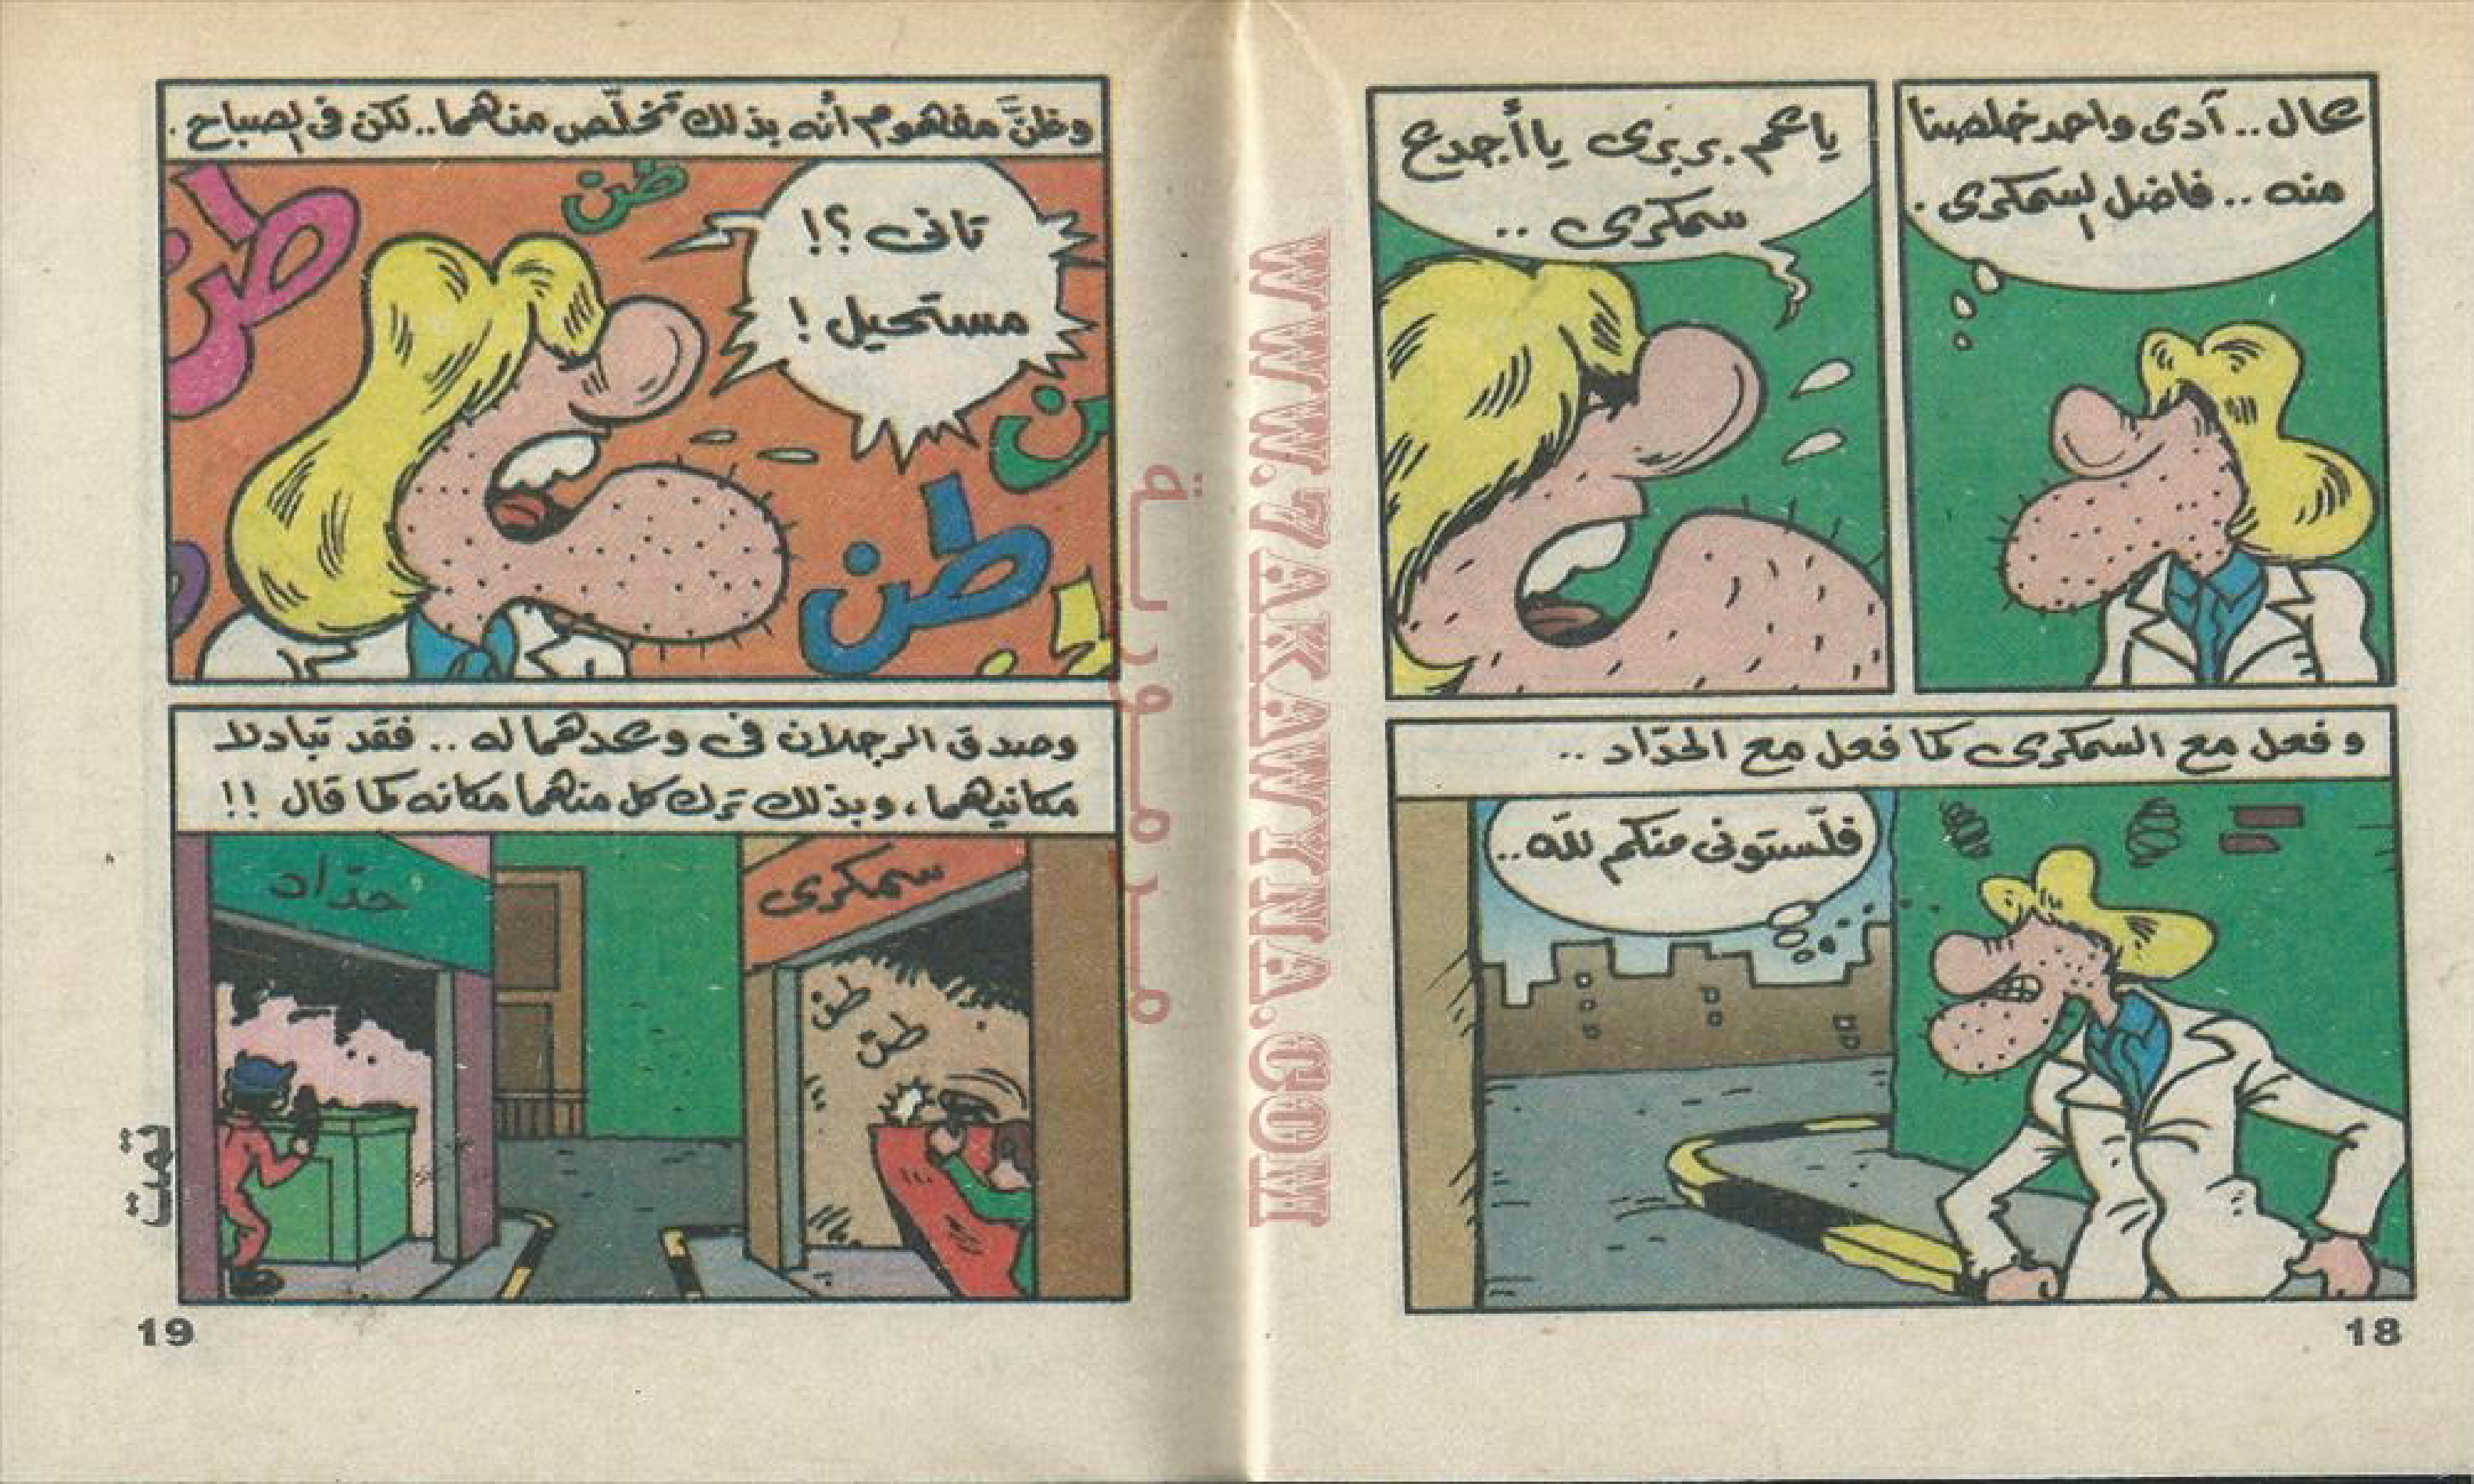 عال.. آدى واحد خلصنا
منه .. فاضل السمكرى .
يا عم بربرى يا أجدع
سمكرى ..
و فعل مع السمكرى كما فعل مع الحدّاد ..
فلّستونى منكم للّه ..
18
وظنَّ مفهوم أنه بذلك تخلّص منهما.. لكن فى الصباح .
طن
طن
تانى ؟!
مستحيل !
ن
طن
وصدق الرجلان فى وعدهما له .. فقد تبادلا
مكانيهما ، وبذلك ترك كل منهما مكانه كما قال !!
سمكرى
حدّاد
طن
طن
تمت
19
WWW.7AKAWYNA.COM